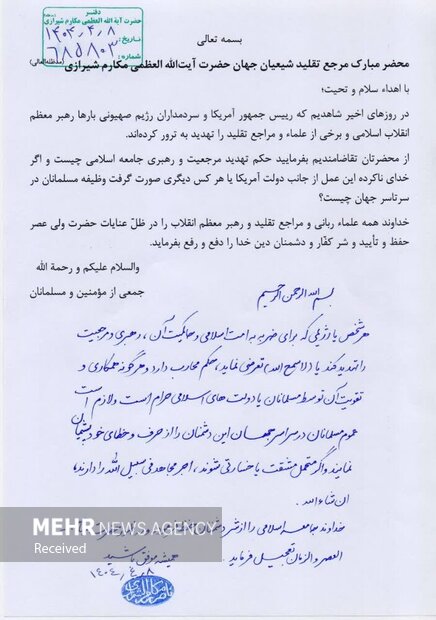 دفتر
حضرت آیة الله العظمی مکارم شیرازی
تاریخ: ۱۴۰۴/۴/۸
شماره: ۶۸۵۸۰۳
بسمه تعالی
محضر مبارک مرجع تقلید شیعیان جهان حضرت آیت‌الله العظمی مکارم شیرازی (مدظله‌العالی)
با اهداء سلام و تحیت؛
در روزهای اخیر شاهدیم که رییس جمهور آمریکا و سردمداران رژیم صهیونی بارها رهبر معظم
انقلاب اسلامی و برخی از علماء و مراجع تقلید را تهدید به ترور کرده‌اند.
از محضرتان تقاضامندیم بفرمایید حکم تهدید مرجعیت و رهبری جامعه اسلامی چیست و اگر
خدای ناکرده این عمل از جانب دولت آمریکا یا هر کس دیگری صورت گرفت وظیفه مسلمانان در
سرتاسر جهان چیست؟
خداوند همه علماء ربانی و مراجع تقلید و رهبر معظم انقلاب را در ظلّ عنایات حضرت ولی عصر
حفظ و تأیید و شر کفّار و دشمنان دین خدا را دفع و رفع بفرماید.
والسلام علیکم و رحمة الله
جمعی از مؤمنین و مسلمانان
بسم الله الرحمن الرحیم
هر شخص یا رژیمی که برای ضربه به امت اسلامی و حاکمیت آن، رهبری و مرجعیت
را تهدید کند یا (لاسمح الله) تعرضی نماید، حکم محارب دارد و هرگونه همکاری و
تقویت آن توسط مسلمانان یا دولت های اسلامی حرام است و لازم است
عموم مسلمانان در سراسر جهان این دشمنان را از حرف و خطای خود پشیمان
نمایند و اگر متحمل مشقت یا خسارتی شوند، اجر مجاهد فی سبیل الله را دارند،
ان شاء الله.
خداوند جامعه اسلامی را از شر
العصر و الزمان تعجیل فرماید.
همیشه موفق باشید
۱۴۰۴/۴/۸
MEHR NEWS AGENCY
Received